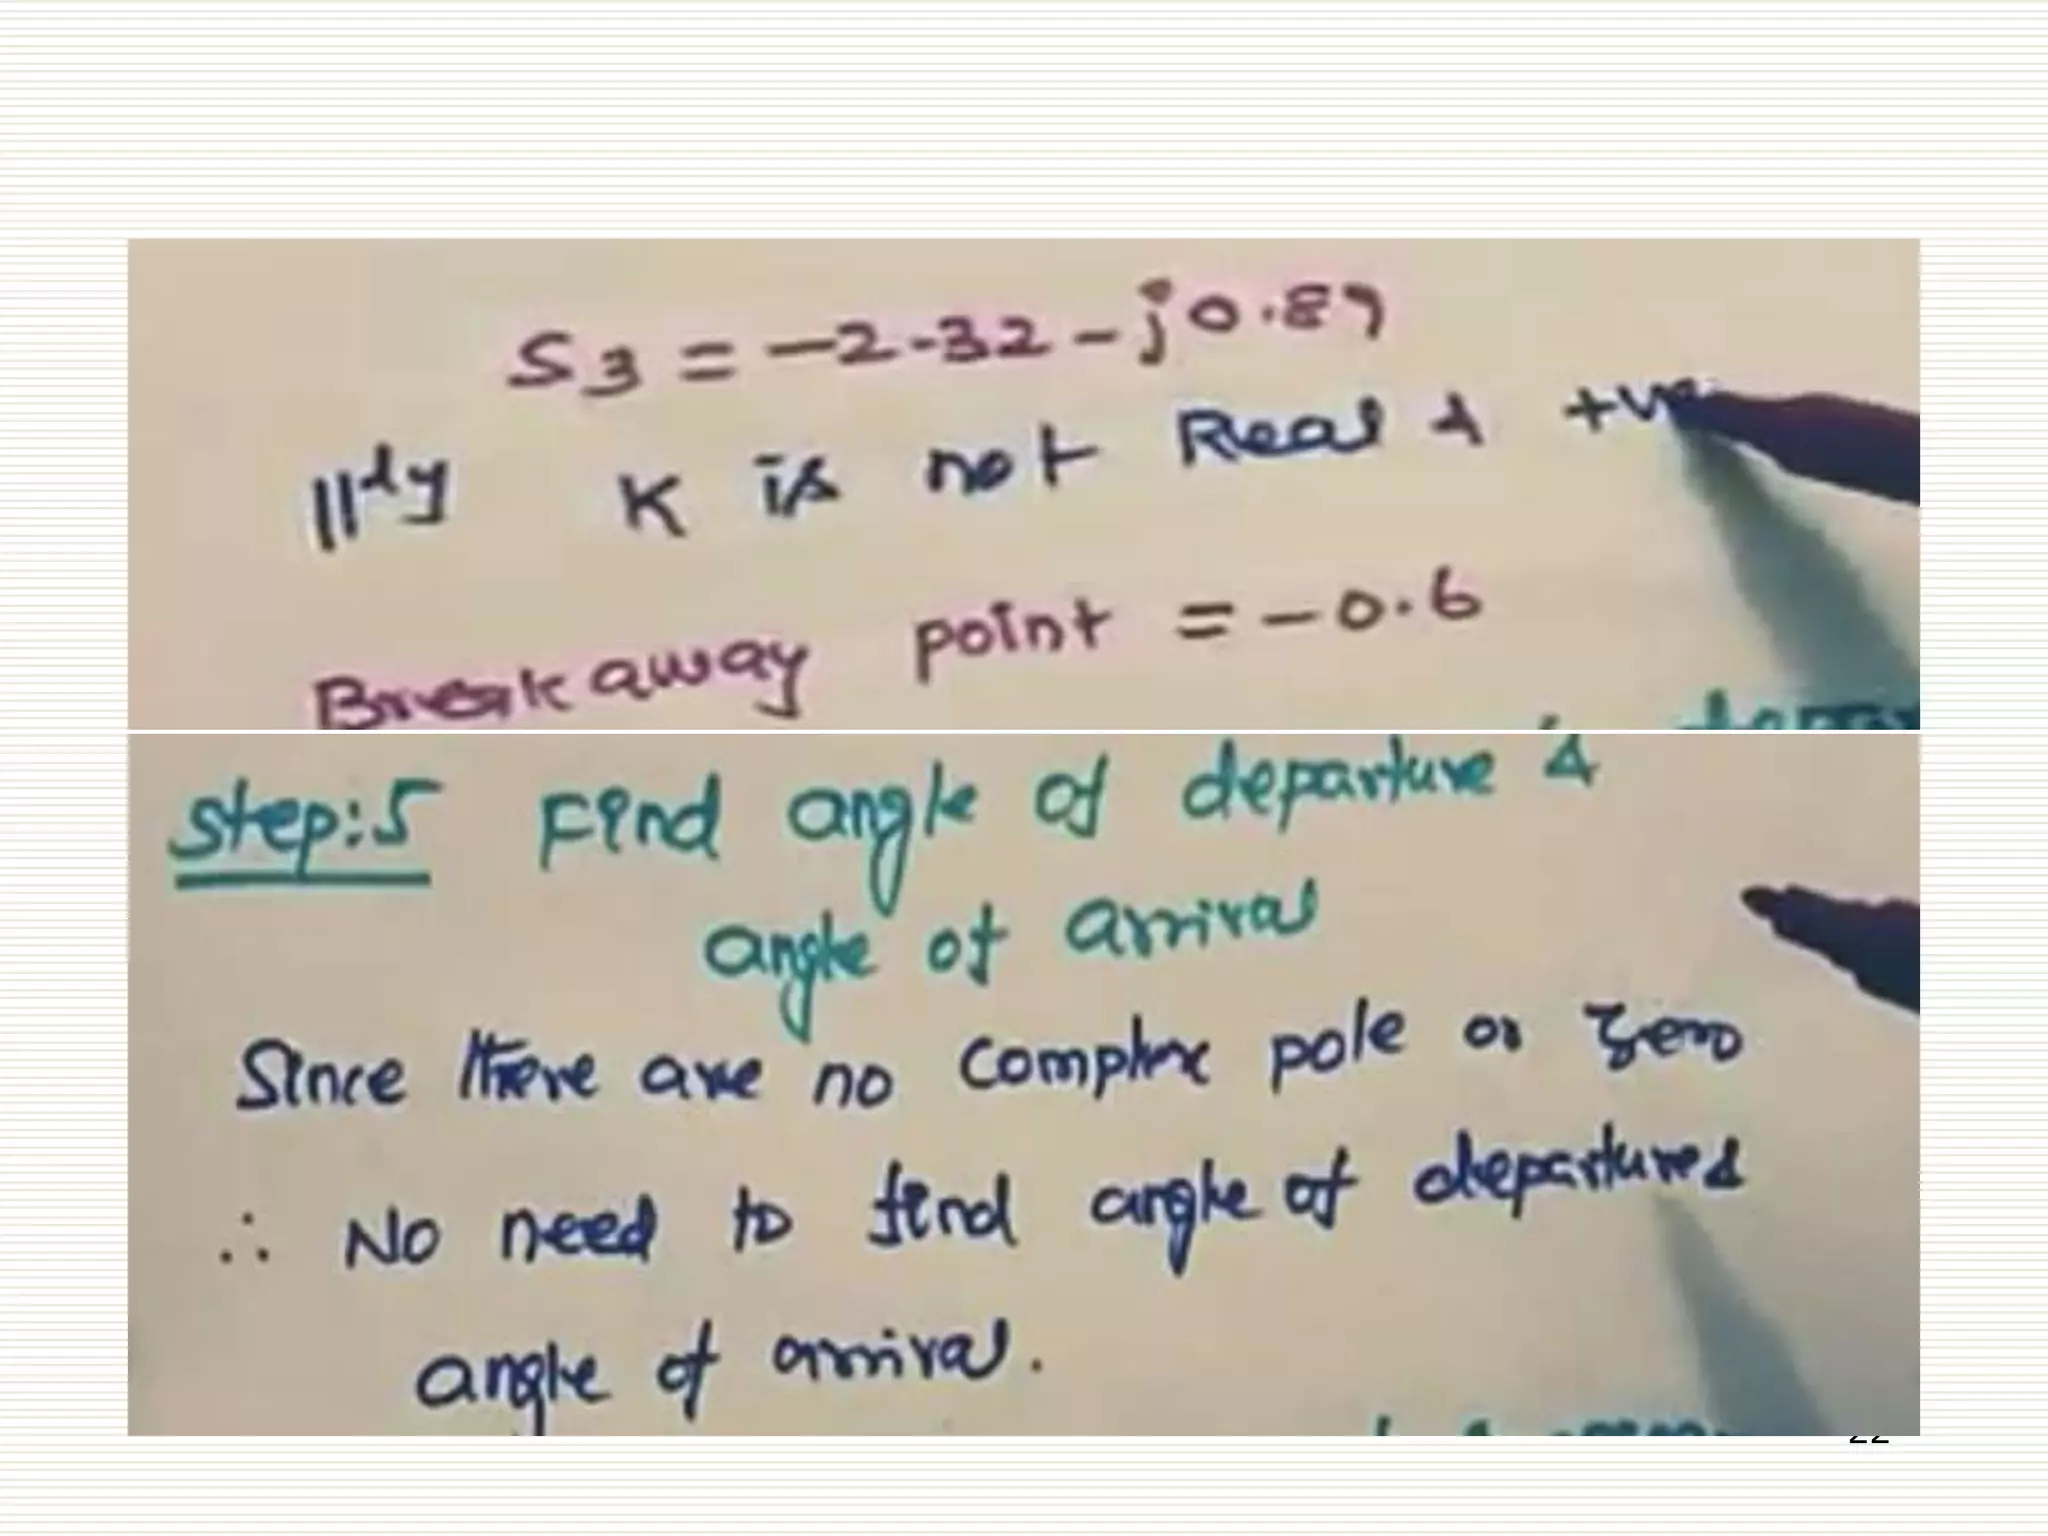 S3 = -2.32 - j0.89
|||dy K is not Real & +ve
Breakaway point = -0.6
Step:5 Find angle of departure &
angle of arrival
Since there are no complex pole or zero
∴ No need to find angle of departure &
angle of arrival.
22